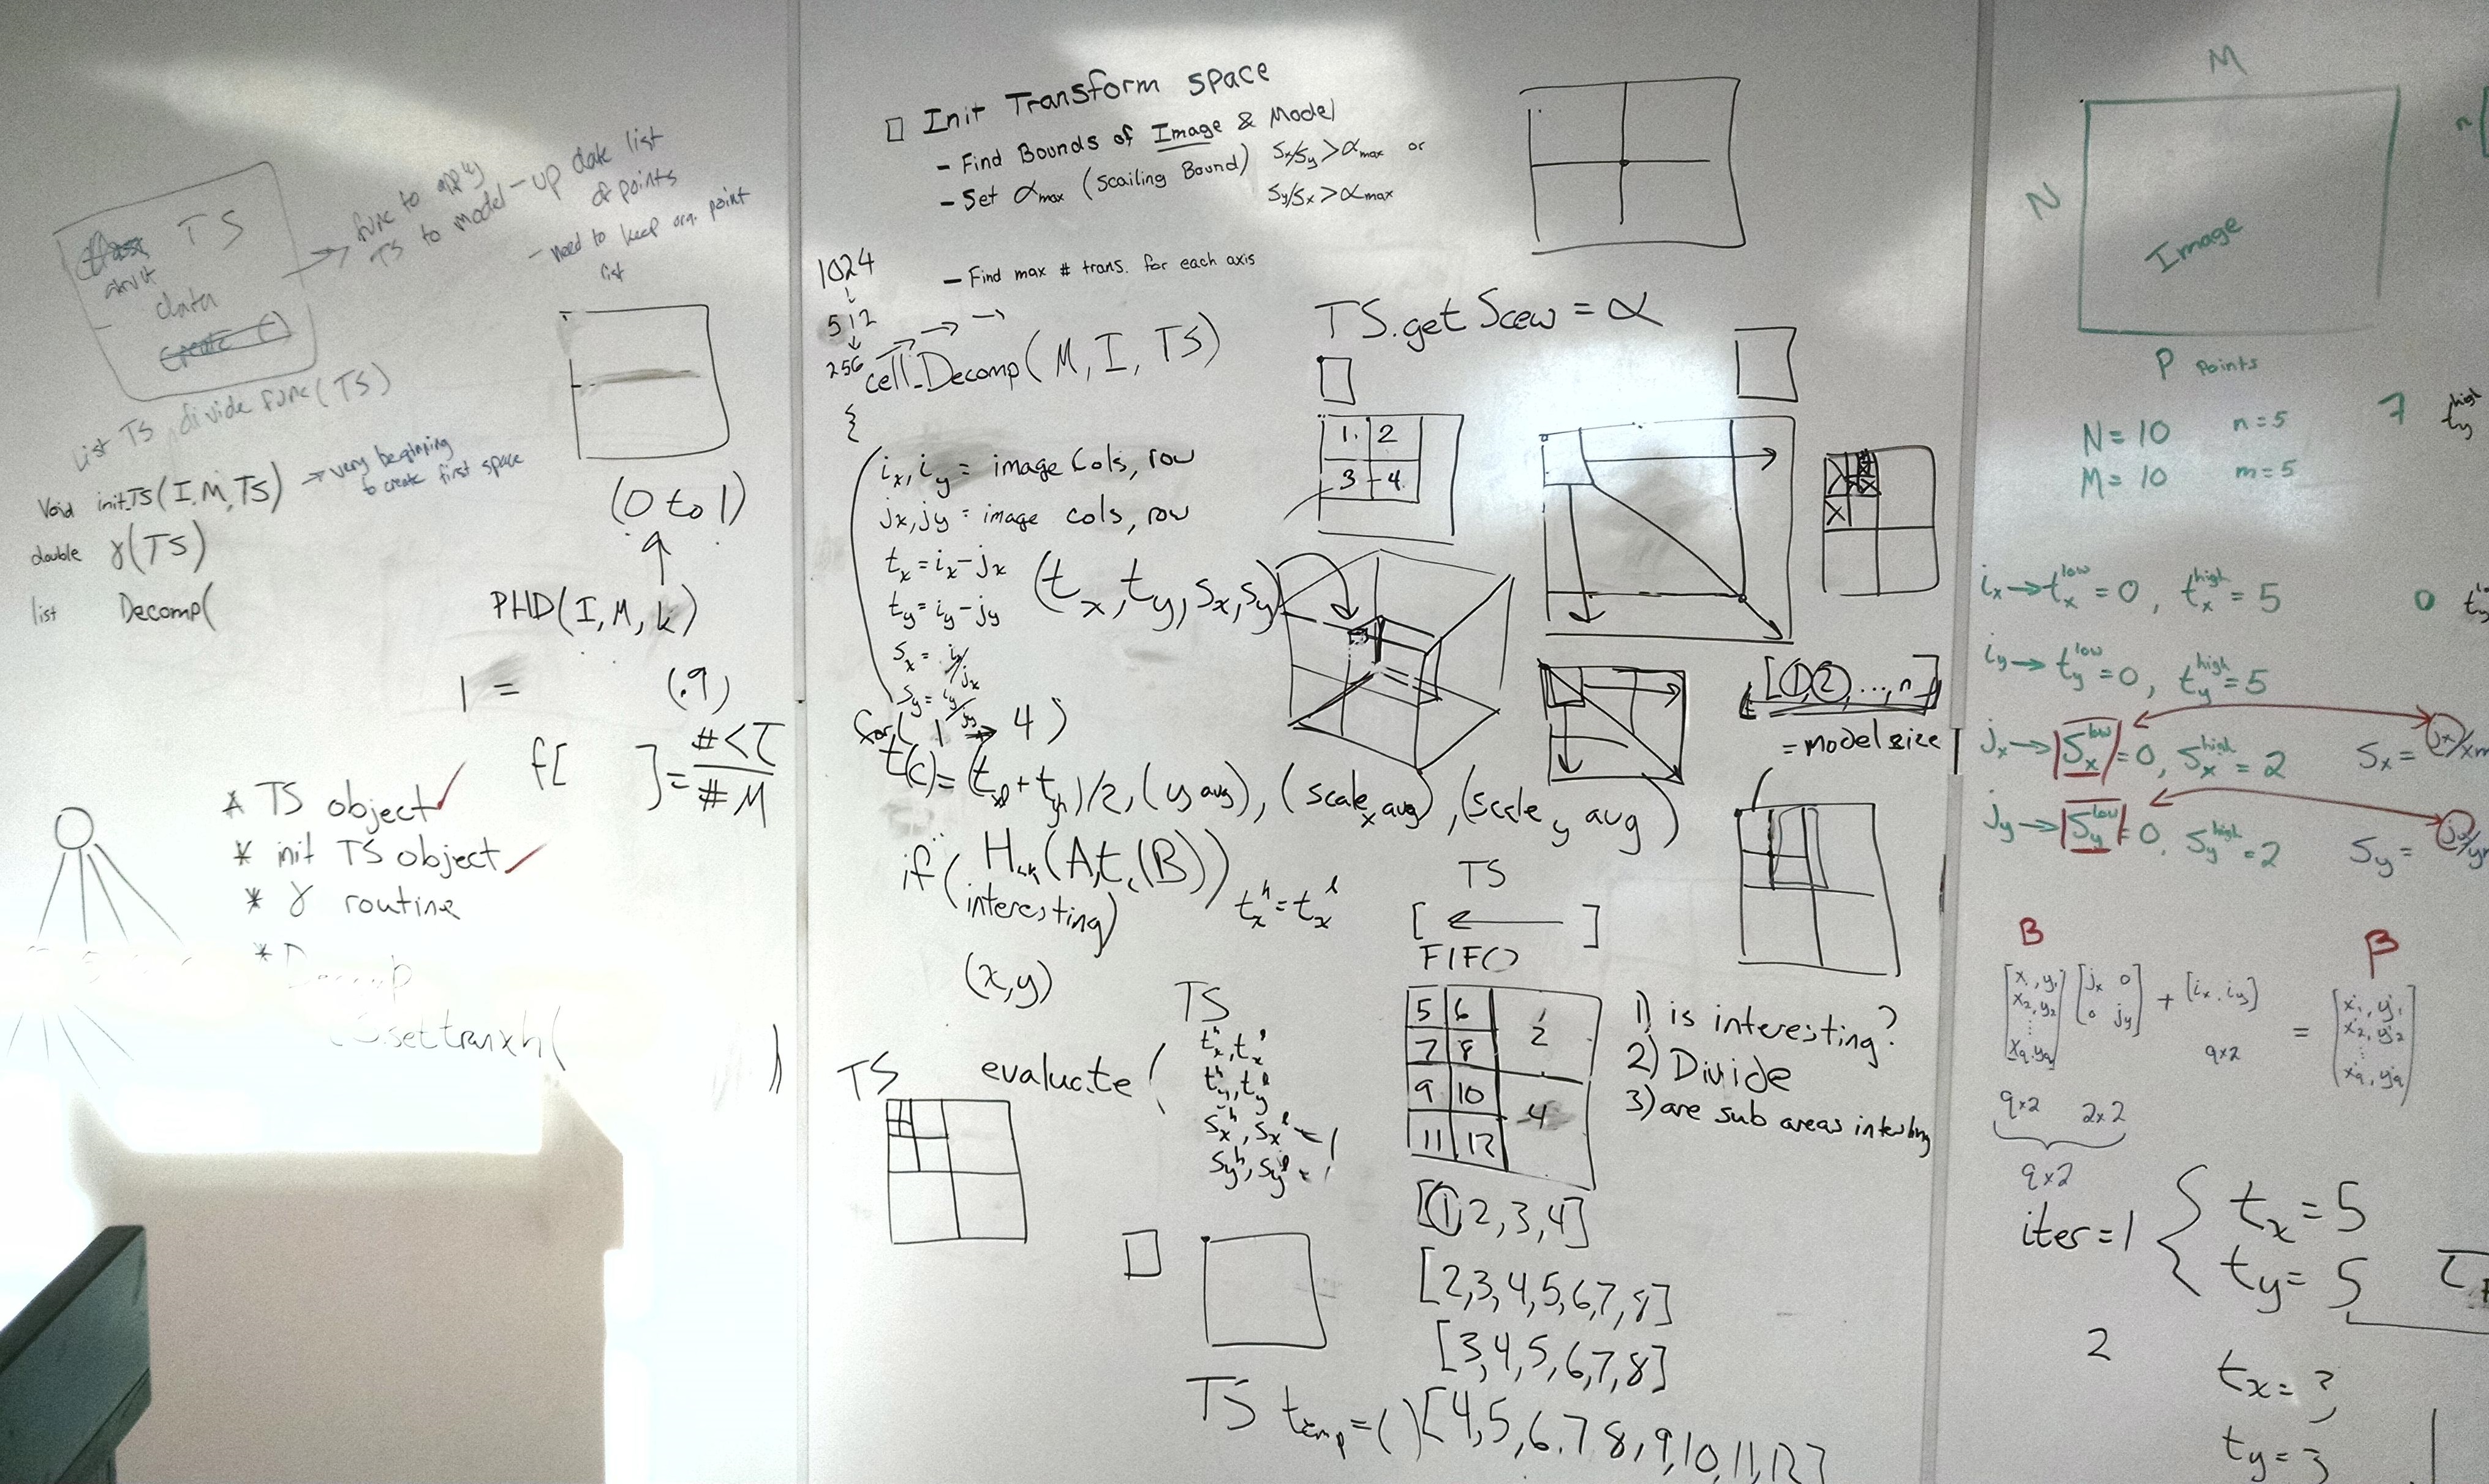 TS
data
create()
func to apply
TS to model - up date list
of points
- need to keep org. point
list
List TS divide func(TS)
Void init_TS(I, M, TS) → very beginning
to create first space
double γ(TS)
list Decomp(
(0 to 1)
PHD(I, M, k)
1 = (.9)
f[ ] = #<τ / #M
* TS object ✓
* init TS object ✓
* γ routine
* Decomp
settranxh( )
□ Init Transform Space
- Find Bounds of Image & Model
- Set αmax (Scailing Bound) Sx/Sy > αmax or
Sy/Sx > αmax
- Find max # trans. for each axis
1024
↓
512
↓
256
cell_Decomp(M, I, TS)
{
ix, iy = image cols, row
jx, jy = image cols, row
tx = ix - jx
ty = iy - jy
sx = ix/jx
sy = iy/jy
(tx, ty, sx, sy)
for( 1 → 4 )
t(c) = (txl + txh)/2, (y avg), (scale x avg), (scale y avg)
if ( H (A, tc(B))
interesting)
txh = txl
(x,y)
TS.getScew = α
1. 2
3 4
[1, 2, ..., n]
= model size
TS
[ ← ]
FIFO
TS
TS
evaluate (
txh, txl
tyh, tyl
sxh, sxl = 1
syh, syl = 1
5 6
7 8 2
9 10
11 12 4
1) is interesting?
2) Divide
3) are sub areas interesting
[1, 2, 3, 4]
[2,3,4,5,6,7,8]
[3,4,5,6,7,8]
TS temp = ( ) [4,5,6,7 8,9,10,11,12]
M
N
Image
P points
N = 10 n = 5
M = 10 m = 5
7 tyhigh
ix → txlow = 0, txhigh = 5
0
iy → tylow = 0, tyhigh = 5
jx → |Sxlow| = 0, Sxhigh = 2 Sx = jx/xm
jy → |Sylow| = 0, Syhigh = 2 Sy = jy/ym
B β
[x1, y1 x2, y2 ⋮ xq, yq] [jx 0 0 jy] + [ix, iy] = [x'1, y'1 x'2, y'2 ⋮ x'q, y'q]
q×2 2×2 q×2
q×2
iter = 1 { tx = 5
ty = 5
2
tx = ?
ty = ?